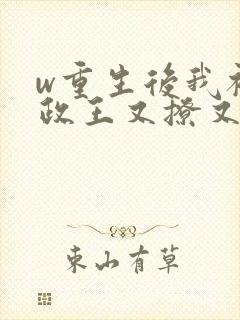 w重生後我被
政王又撩又
東山有草